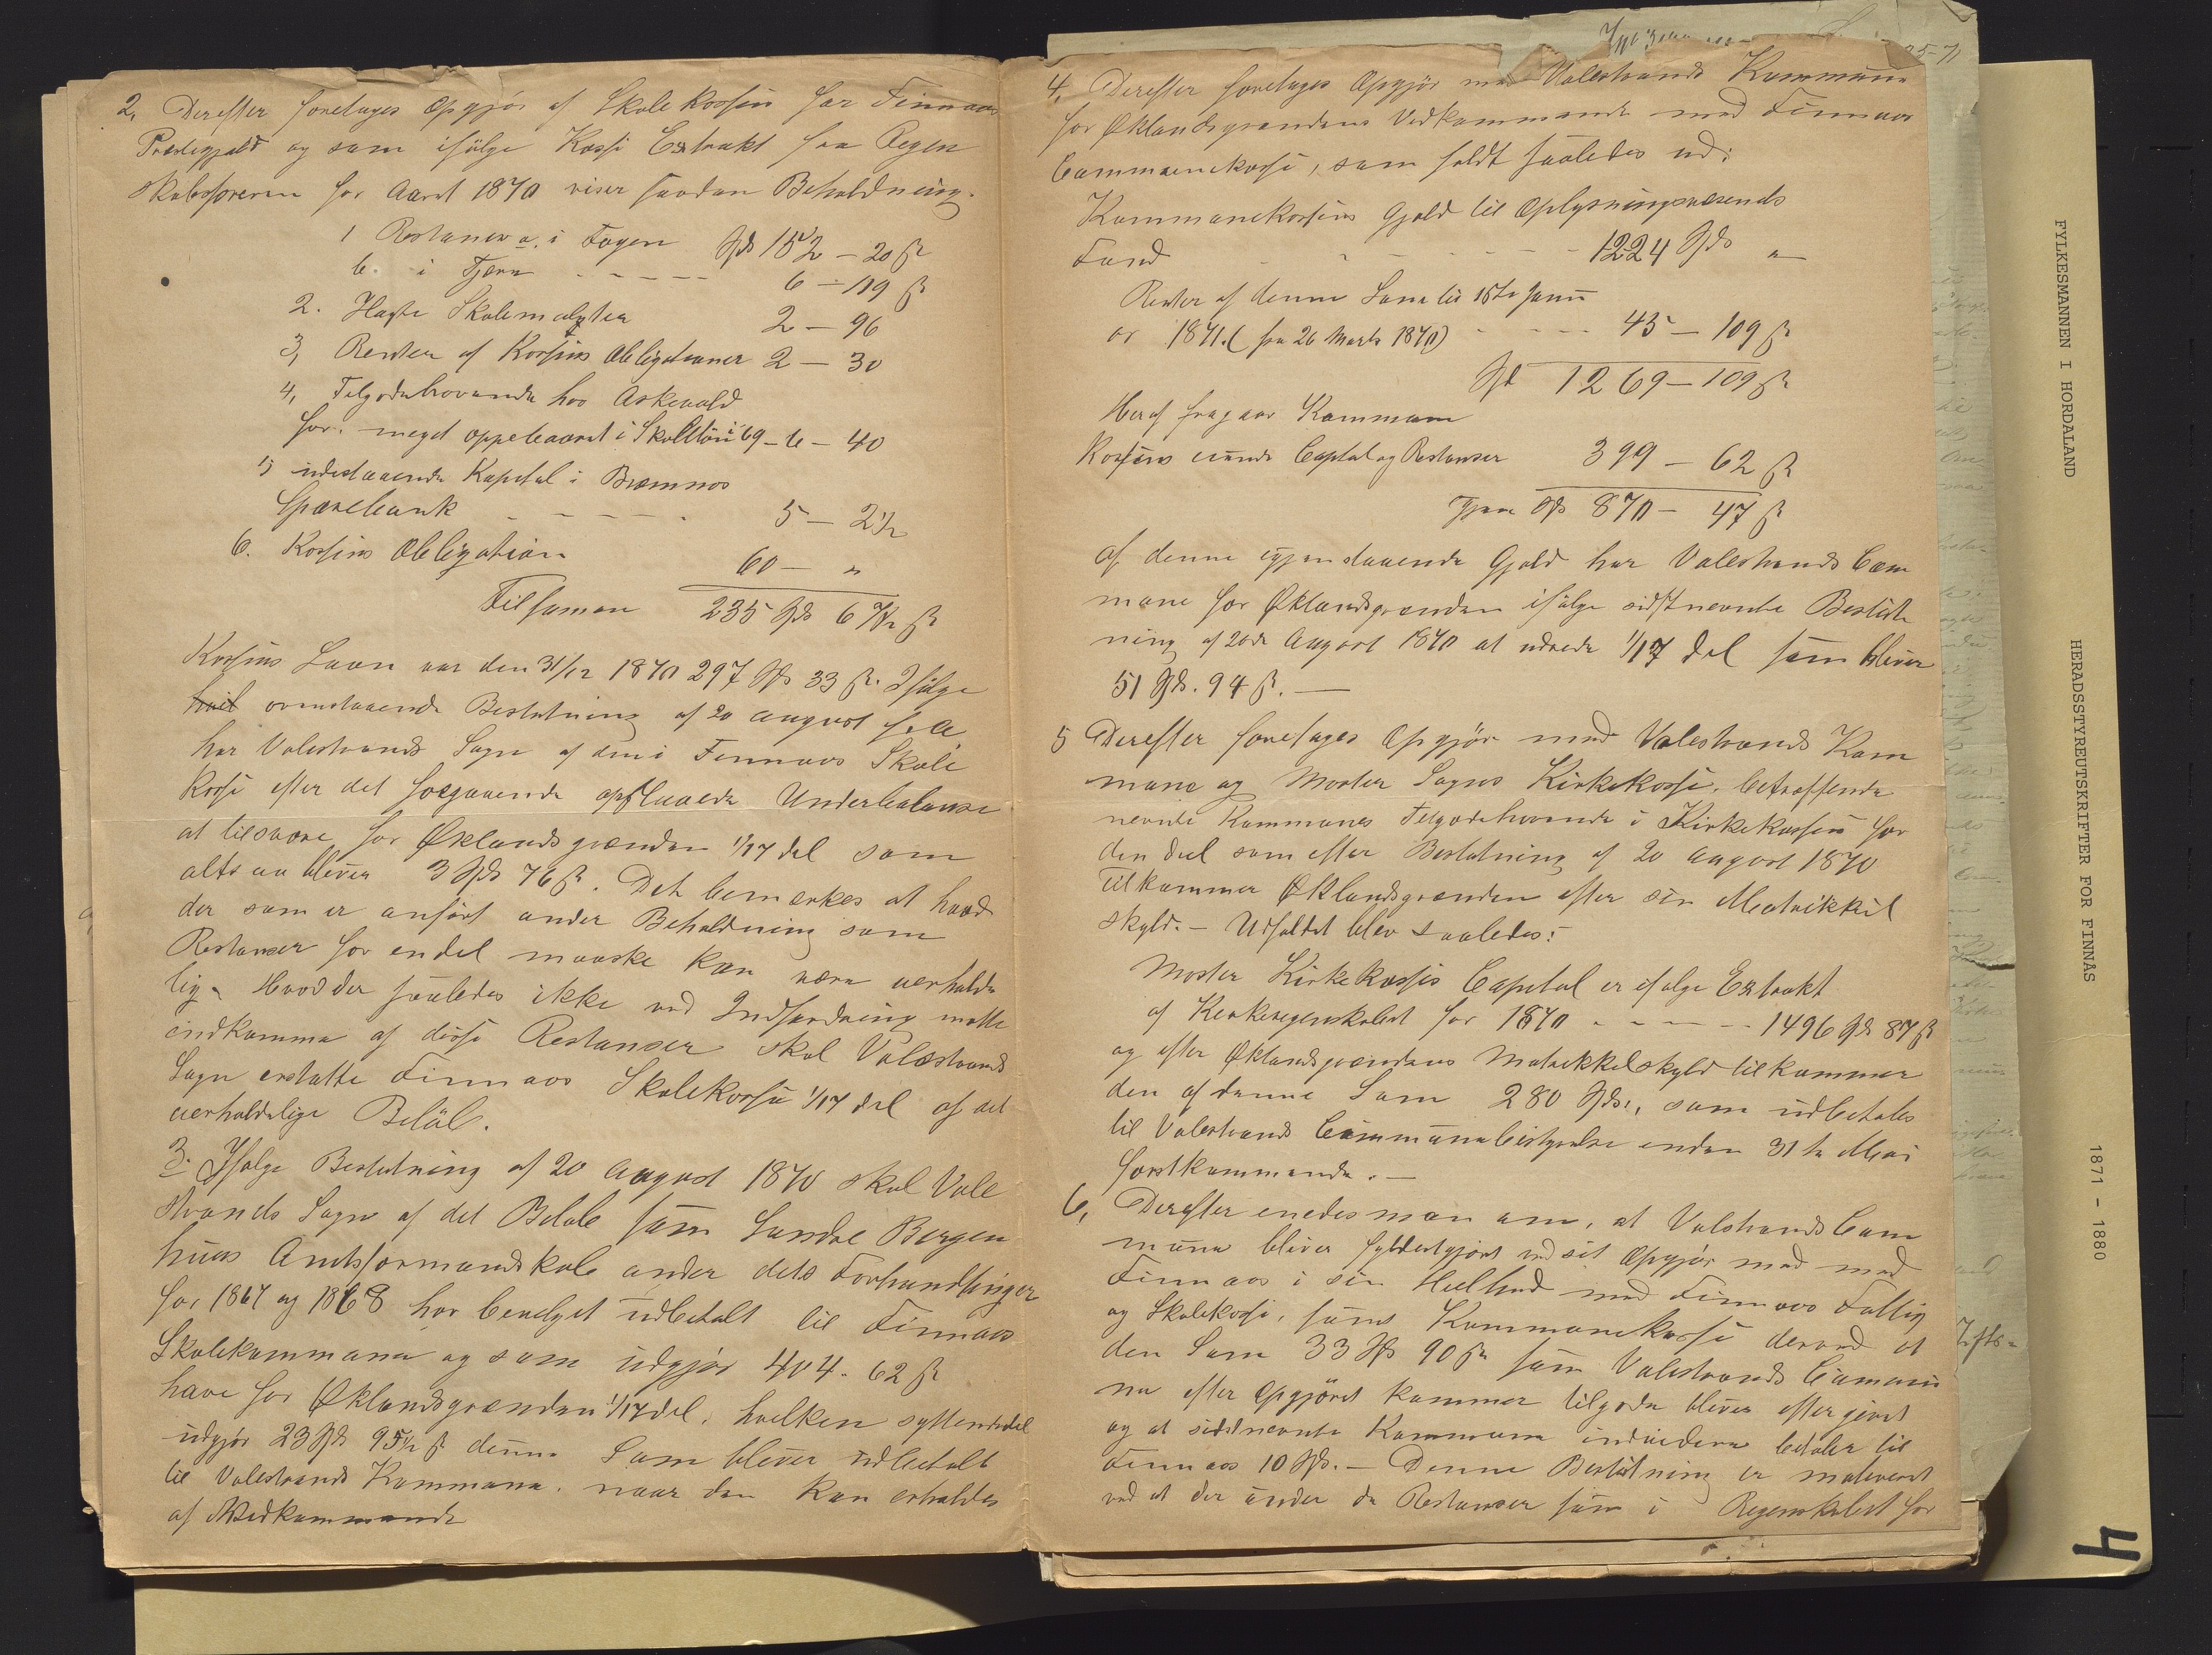 2, Derefter foretages Opgjör af Skolekassen for Finnaas
Præstegjeld og som ifölge Kasse Extrakt fra Regen
skabsföreren for Aaret 1870 viser saadan Beholdning.
1 Restancer a. i Fogen Spd 152 - 20 ß
b. i Fjæra - - - - - 6 - 119 ß
2. Hafte Skolemulkter 2 - 96
3, Renter af Kassens Obligationer 2 - 30
4, Tilgodehavende hos Askevold
for meget oppebaaret i Skolelön i 69 - 6 - 40
5 indestaaende Kapital i Bremnes
Sparebank - - - - - 5 - 2 1/2
6. Kassens Obligation 60 - "
Tilsamen 235 Spd 67 1/2 ß
Kassens Laan var den 31/12 1870 297 Spd 33 ß. Ifölge
ovenstaaende Beslutning af 20 august f. A
har Valestrands Sogn af den i Finnaas Skole
kasse efter det foregaaende opstaaede Underbalance
at tilsvare for Öklandsgrænden 1/17 del som
altsaa bliver 3 Spd 76 ß. Det bemerkes at hvad
der som er anfört under Beholdning som
Restanser for endel maaske kan være uerholde
lig. Hvad der saaledes ikke ved Indfordring matte
indkomme af disse Restanser skal Valestrands
Sogn erstatte Finnaas Skolekasse 1/17 del af det
uerholdelige Belöb.
3. Ifölge Beslutning af 20 August 1870 skal Vale
strands Sogn af det Belöb som Söndre Bergen
huus Amtsformandskab under dets Forhandlinger
for 1867 og 1868 har bevilget udbetalt til Finnaas
Skolekommune og som udgjör 404. 62 ß
have for Öklandsgrænden 1/17 del, hvilken syttendedel
udgjör 23 Spd 95 1/2 ß denne Sum bliver udbetalt
til Valestrands Kommune, naar den kan erholdes
af Vedkommende
4, Derefter foretages Opgjör med Valestrands Kommune
for Öklandsgrændens Vedkommende med Finnaas
Communekasse, som faldt saaledes ud:
Kommunekassens Gjeld til Oplysningsvæsenets
Fond - - - - - 1224 Spd "
Renter af denne Sum til 15de Janu
ar 1871. (fra 26 Marts 1870) - - - - 45 - 109 ß
Spd 1269 - 109 ß
Heraf fragaar Kommune
Kassens eiende Captal og Restanser 399 - 62 ß
Igjen Spd 870 - 47 ß
af denne igjenstaaende Gjeld har Valestrands Com
mune for Öklandsgrænden ifölge sidstnevnte Beslut
ning af 20de August 1870 at udrede 1/17 del som bliver
51 Spd. 94 ß. -
5 Derefter foretages Opgjör med Valestrands Kom
mune og Moster Sogns Kirkekasse, betræffende
nevnte Kommunes Tilgodehavende i Kirkekassen for
den deel som efter Beslutning af 20 August 1870
tilkommer Öklandsgrænden efter sin Matrikkel
skyld. - Udfaldet blev saaledes:
Moster Kirkekasses Capital er ifölge Extrakt
af Kirkeregenskabet for 1870 - - - - - 1496 Spd 87 ß
og efter Öklandsgrændens Matrikkelskyld tilkommer
den af denne Sum 280 Spd., som udbetales
til Valestrands Communebestyrelse inden 31te Mai
förstkommende. -
6, Derefter enedes man om, at Valstrands Com
mune bliver fyldestgjort ved sit Opgjör med
Finnaas i sin Helhed med Finnaas Fattig
og Skolekasse, samt Kommunekasse derved at
den Sum 33 Spd 90 ß som Valestrands Commu
ne efter Opgjöret kommer tilgode bliver eftergivet
og at sidstnevnte Kommune indvidere betaler til
Finnaas 10 Spd. - Denne Beslutning er motiveret
ved at der under de Restanser som i Regenskabet for
FYLKESMANNEN I HORDALAND
HERADSSTYREUTSKRIFTER FOR FINNÅS
1871 - 1880
4